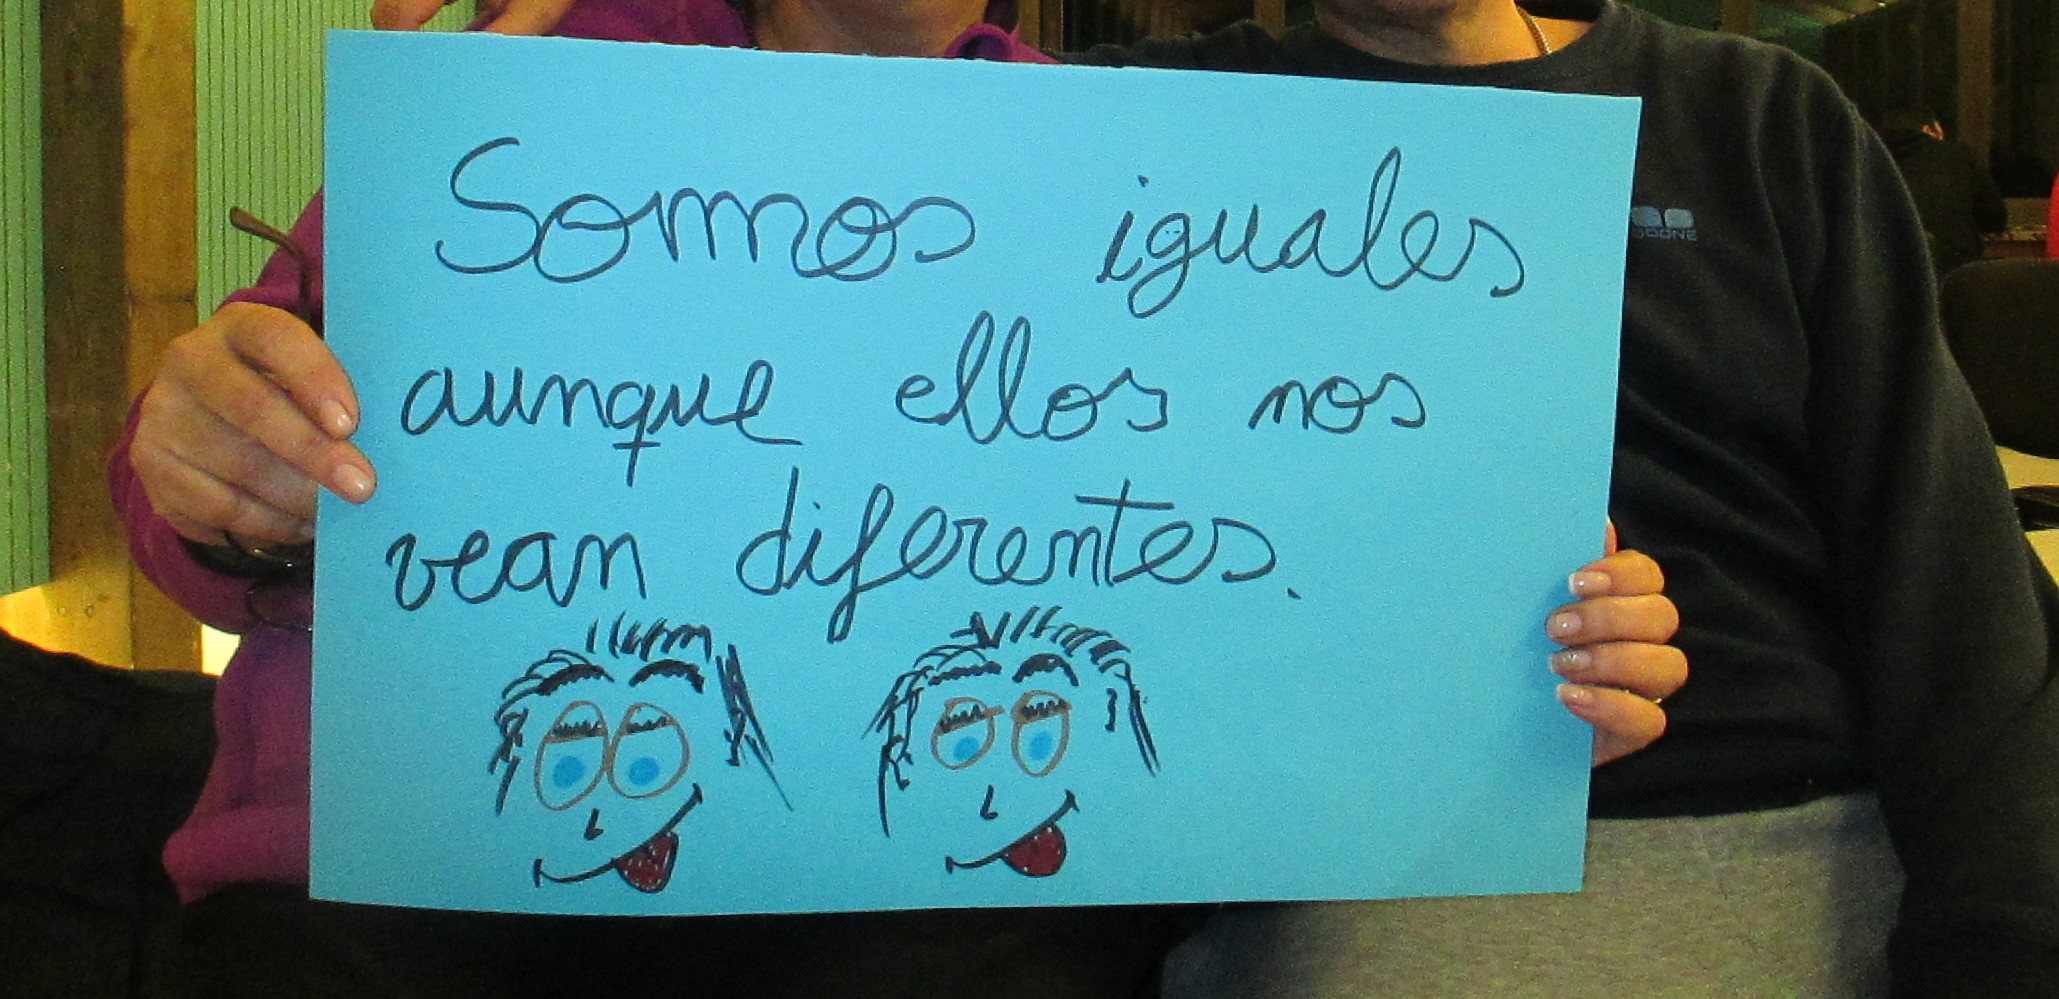 Somos iguales
aunque ellos nos
vean diferentes.